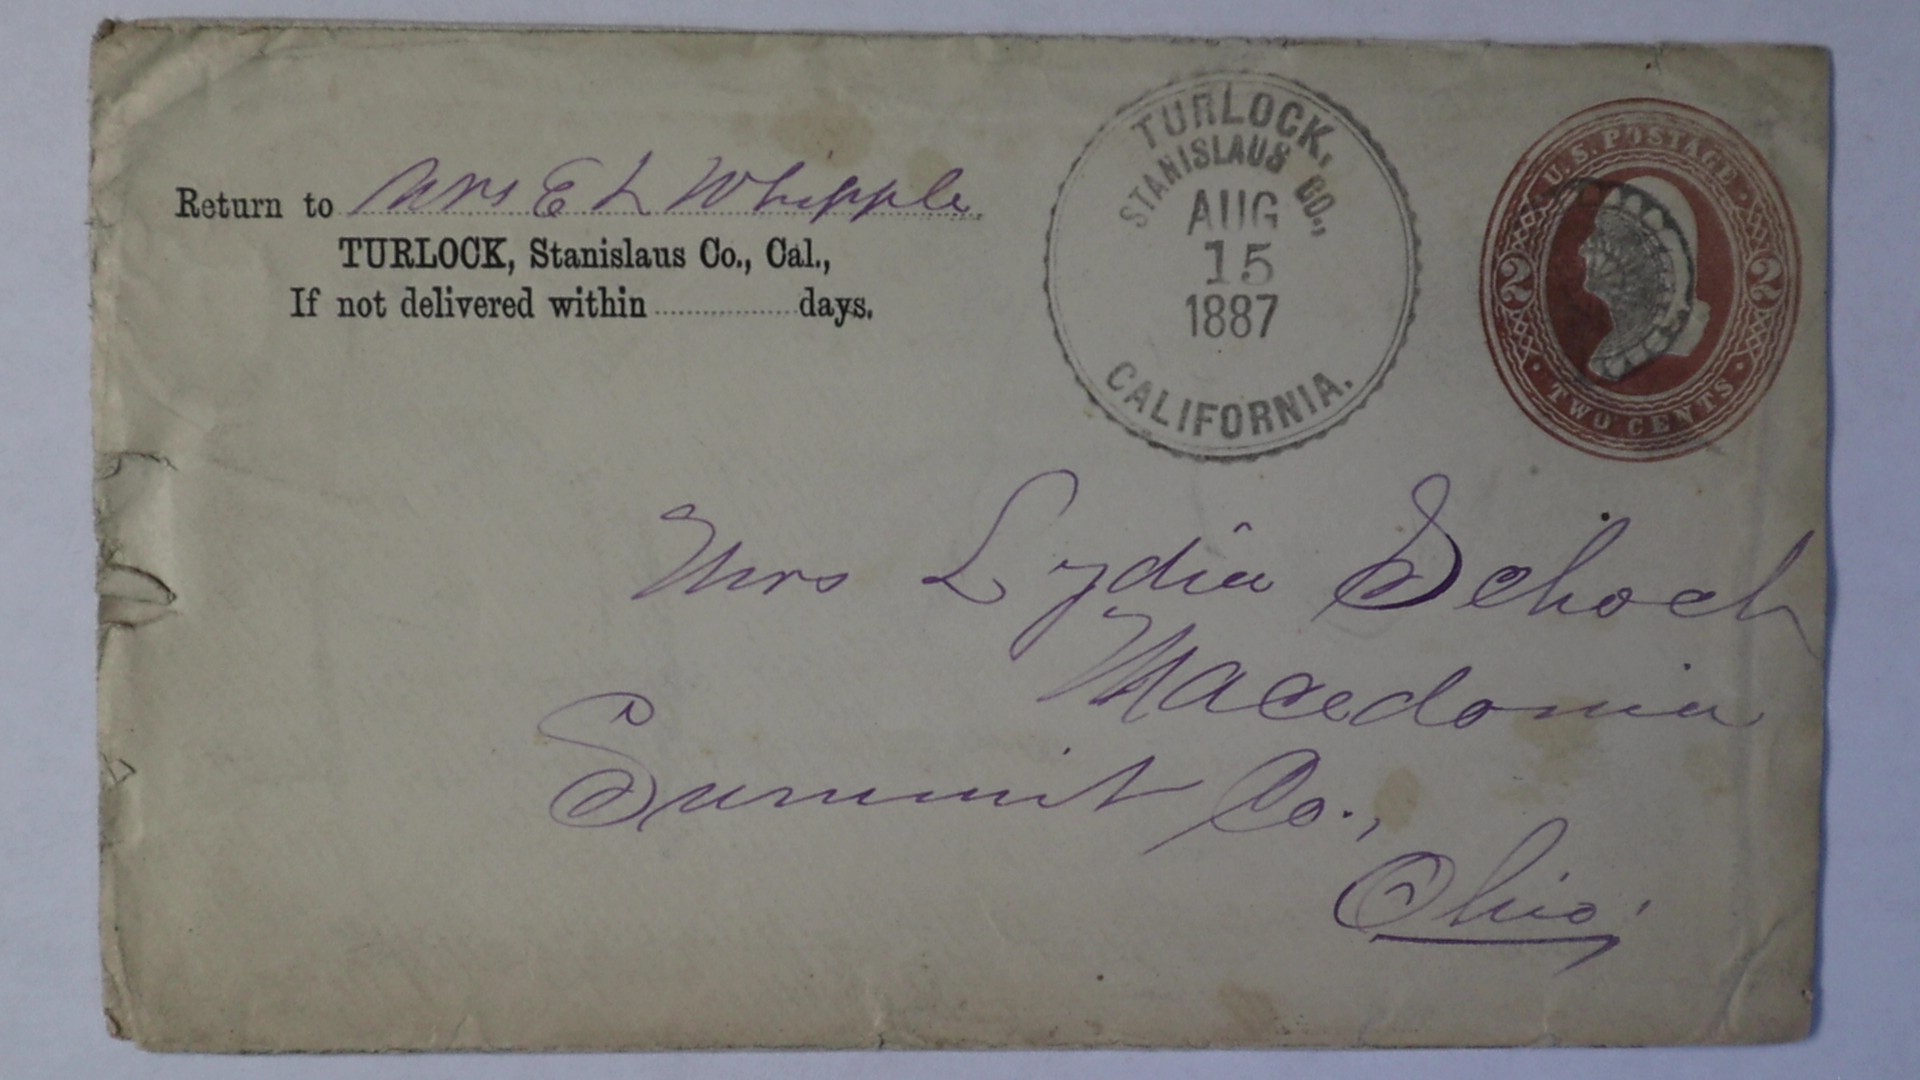 Return to Mrs E L Whipple
TURLOCK, Stanislaus Co., Cal.,
If not delivered within ............ days.
TURLOCK,
STANISLAUS CO.,
AUG
15
1887
CALIFORNIA.
U.S. POSTAGE
2 2
TWO CENTS
Mrs Lydia Schoch
Macedonia
Summit Co.,
Ohio.